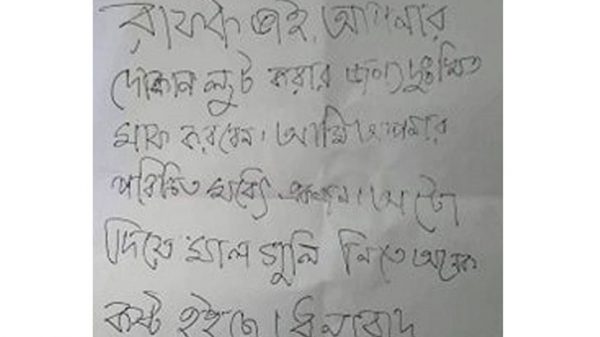 রফিক ভাই, আপনার
দোকান লুট করার জন্য দুঃখিত
মাফ করবেন। আমি আপনার
পরিচিত মধ্যে একজন। অটো
দিয়ে মাল গুলি নিতে অনেক
কষ্ট হইছে। ধন্যবাদ